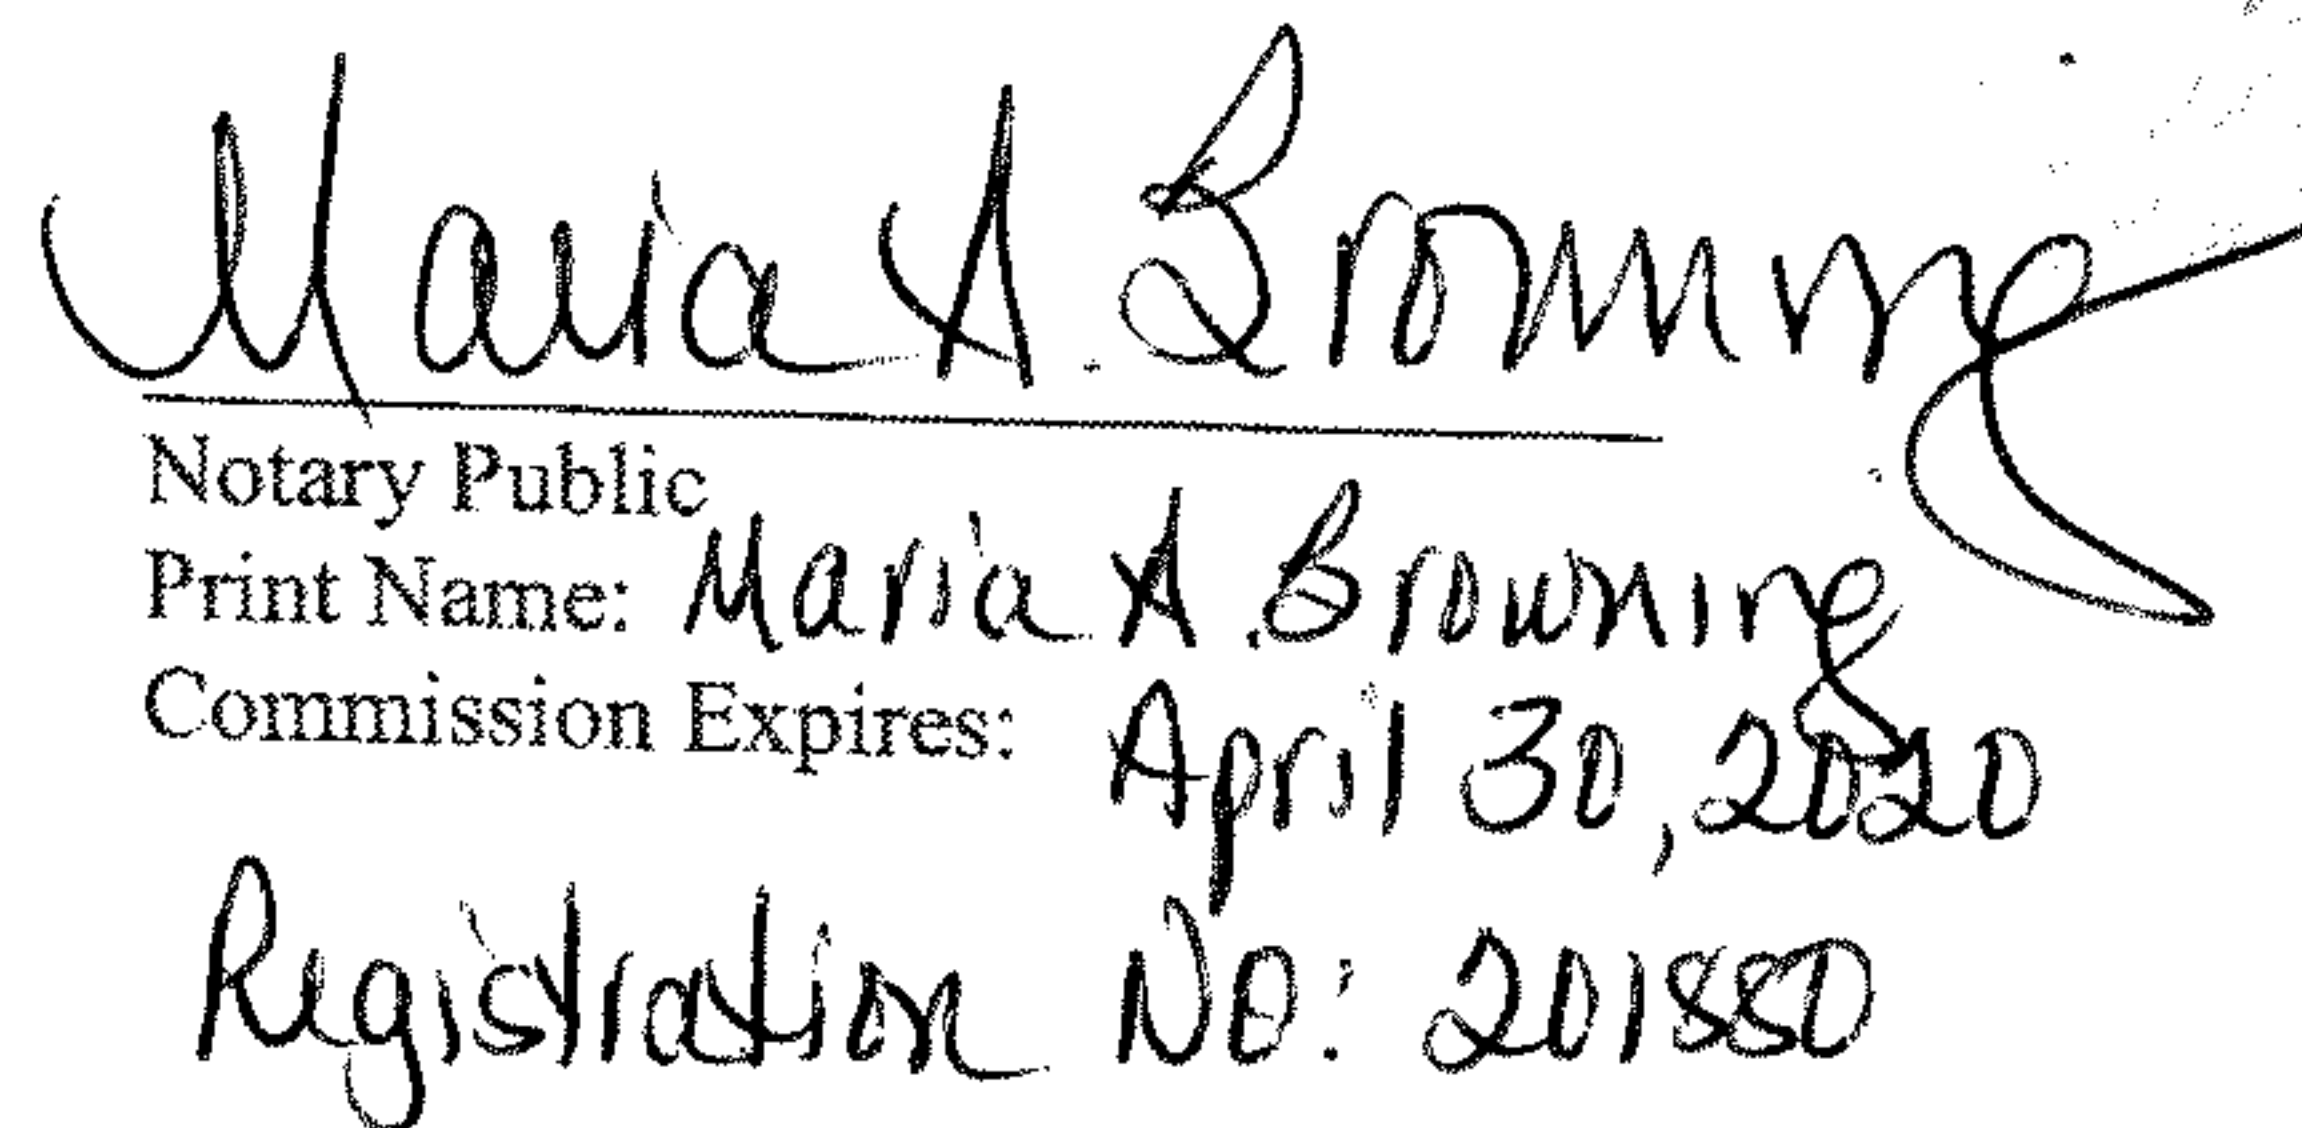 Maria A. Browning
Notary Public
Print Name: Maria A. Browning
Commission Expires: April 30, 2020
Registration No: 201880